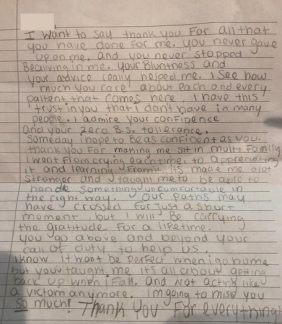 I want to say thank you for all that
you have done for me. you never gave
up on me, and you never stopped
Beleiving in me. Your bluntness and
your advice really helped me. I see how
much you care about each and every
patient that comes here. I have this
trust in you that I don't have in many
people. I admire your confinence
And your zero B.S. tollerance.
Someday I hope to be as confident as you.
Thank you for making me sit in multi family
I went from crying each time, to appreciating
it and learning from it. It's made me a lot
stronger and taught me to be able to
handle something uncomfortable in
the right way. Our paths may
have crossed for just a short
moment, but I will be carrying
the gratitude for a lifetime.
You go above and beyond your
call of duty to help us.
I know it wont be perfect when I go home
but you taught me its all about getting
back up when I fall. And not acting like
a victom anymore. I'm going to miss you
so much! Thank you for everything!